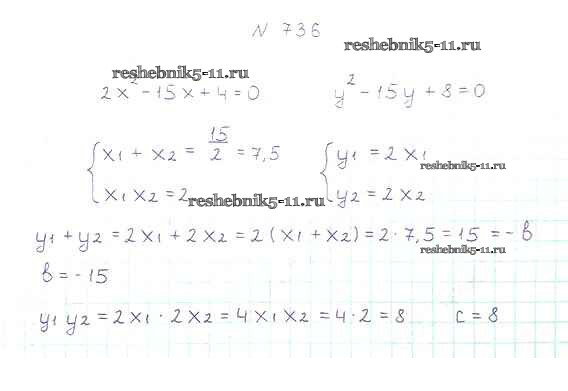 N 736
reshebnik5-11.ru
reshebnik5-11.ru
2x² - 15x + 4 = 0    y² - 15y + 8 = 0
{ x₁ + x₂ = 15/2 = 7,5    { y₁ = 2x₁
reshebnik5-11.ru
x₁ x₂ = 2    y₂ = 2x₂
reshebnik5-11.ru
y₁ + y₂ = 2x₁ + 2x₂ = 2(x₁ + x₂) = 2·7,5 = 15 = -в
reshebnik5-11.ru
в = -15
y₁ y₂ = 2x₁ · 2x₂ = 4x₁x₂ = 4·2 = 8    c = 8